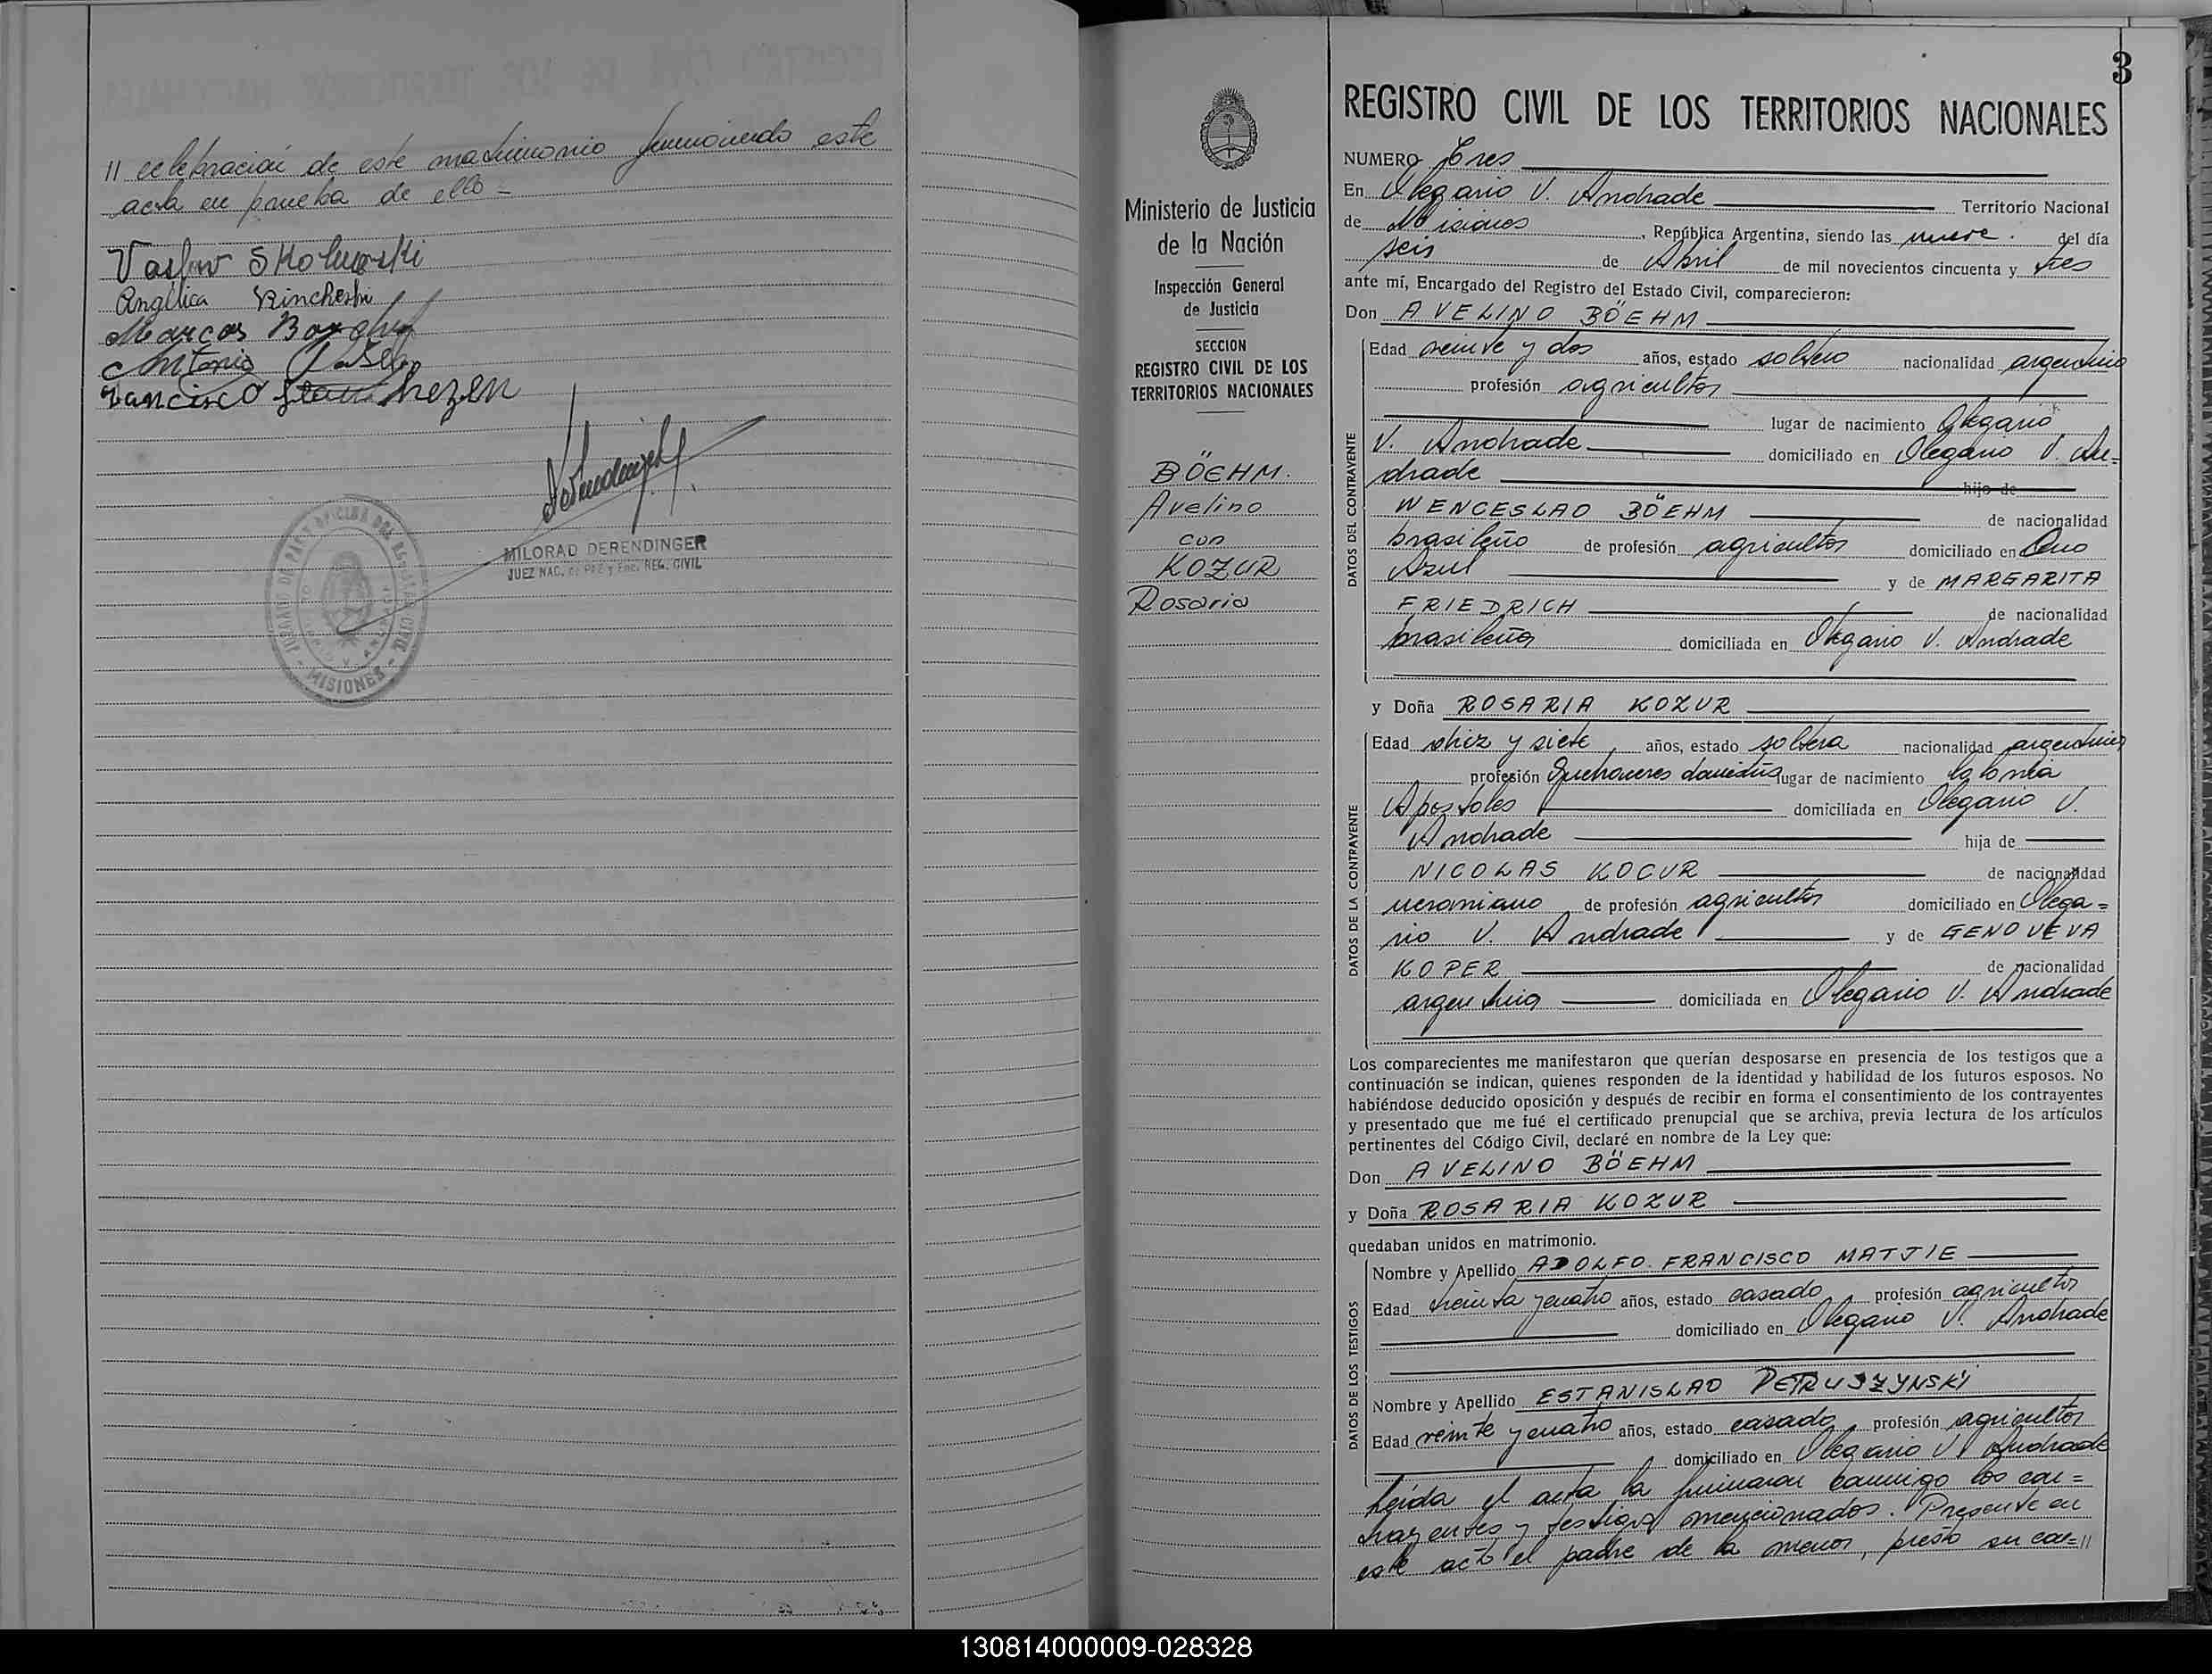 // celebración de este matrimonio firmando este
acta en prueba de ello =
Angélica
Marcos
Antonio
Francisco
MILORAD DERENDINGER
JUEZ NAC. de PAZ y Enc. REG. CIVIL
MISIONES
3
REGISTRO CIVIL DE LOS TERRITORIOS NACIONALES
Ministerio de Justicia
de la Nación
Inspección General
de Justicia
SECCION
REGISTRO CIVIL DE LOS
TERRITORIOS NACIONALES
BÖEHM.
Avelino
con
KOZUR
Rosaria
NUMERO Tres
En Olegario V. Andrade Territorio Nacional
de Misiones, República Argentina, siendo las nueve. del día
seis de Abril de mil novecientos cincuenta y tres
ante mí, Encargado del Registro del Estado Civil, comparecieron:
Don AVELINO BÖEHM
DATOS DEL CONTRAYENTE
Edad veinte y dos años, estado soltero nacionalidad argentino
profesión agricultor
lugar de nacimiento Olegario
V. Andrade domiciliado en Olegario V. An=
drade hijo de
WENCESLAO BÖEHM de nacionalidad
brasileño de profesión agricultor domiciliado en Cuo
Azul y de MARGARITA
FRIEDRICH de nacionalidad
brasileña domiciliada en Olegario V. Andrade
y Doña ROSARIA KOZUR
DATOS DE LA CONTRAYENTE
Edad diez y siete años, estado soltera nacionalidad argentina
profesión Quehaceres domésticos lugar de nacimiento Colonia
Apostoles domiciliada en Olegario V.
Andrade hija de
NICOLAS KOCUR de nacionalidad
ucraniano de profesión agricultor domiciliado en Olega=
rio V. Andrade y de GENOVEVA
KOPER de nacionalidad
argentina domiciliada en Olegario V. Andrade
Los comparecientes me manifestaron que querían desposarse en presencia de los testigos que a
continuación se indican, quienes responden de la identidad y habilidad de los futuros esposos. No
habiéndose deducido oposición y después de recibir en forma el consentimiento de los contrayentes
y presentado que me fué el certificado prenupcial que se archiva, previa lectura de los artículos
pertinentes del Código Civil, declaré en nombre de la Ley que:
Don AVELINO BÖEHM
y Doña ROSARIA KOZUR
quedaban unidos en matrimonio.
DATOS DE LOS TESTIGOS
Nombre y Apellido ADOLFO FRANCISCO MATJIE
Edad treinta y cuatro años, estado casado profesión agricultor
domiciliado en Olegario V. Andrade
Nombre y Apellido ESTANISLAO PETRUSZYNSKI
Edad veinte y cuatro años, estado casado profesión agricultor
domiciliado en Olegario V. Andrade
Leída el acta la firmaron conmigo los con=
trayentes y testigos mencionados. Presente en
este acto el padre de la menor, prestó su con=//
130814000009-028328